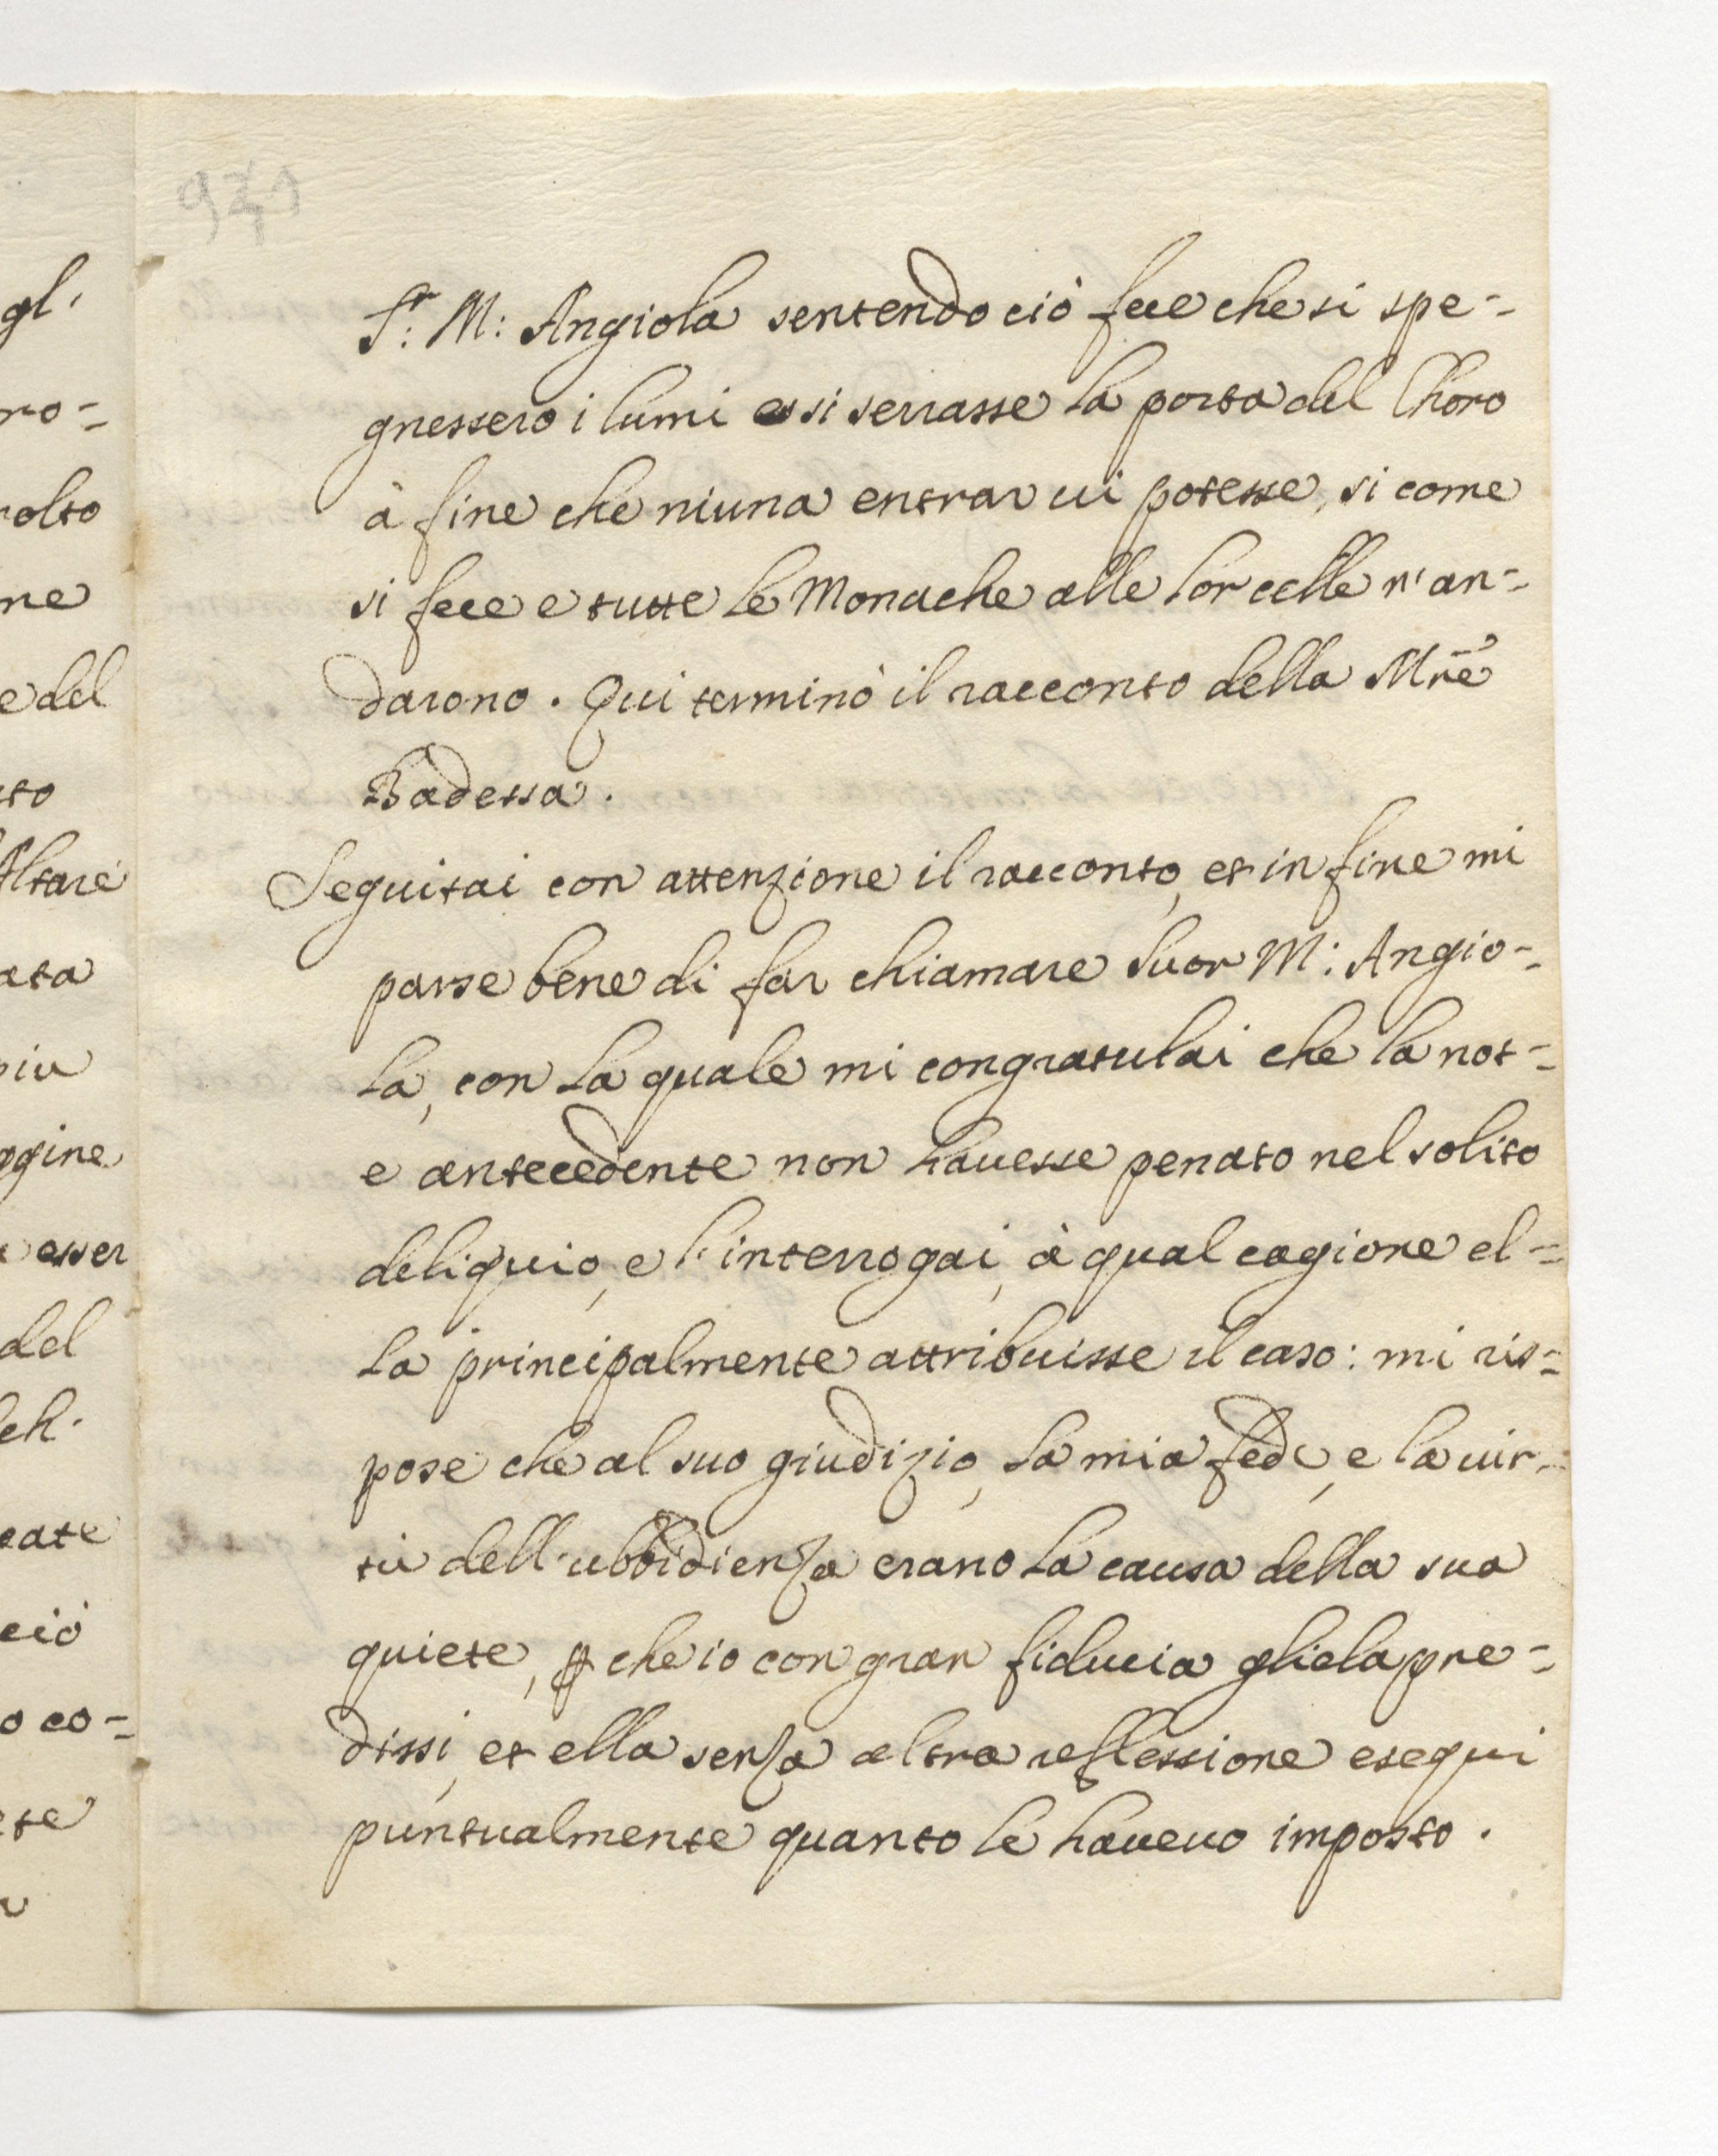 Sr: M: Angiola sentendo ciò fece che si spe=
gnessero i lumi e si serrasse la porta del Choro
à fine che niuna entrar ui potesse, si come
si fece e tutte le Monache alle lor celle n'an=
darono. Qui terminò il racconto della Mre
Badessa.
Seguitai con attenzione il racconto, et in fine mi
parse bene di far chiamare Suor M: Angio=
la, con la quale mi congratulai che la not=
e antecedente non hauesse penato nel solito
deliquio, e l'interrogai, à qual cagione el=
la principalmente attribuisse il caso: mi ris=
pose che al suo giudizio, la mia fede, e la uir=
tù dell'ubbidienza erano la causa della sua
quiete, p che io con gran fiducia gliela pre=
dissi, et ella senza altra reflessione esequi
puntualmente quanto le haueuo imposto.
gl'
ro=
olto
ne
e del
to
Altare
ata
piu
ggine
esser
del
ch.
cate
ciò
o co=
ete